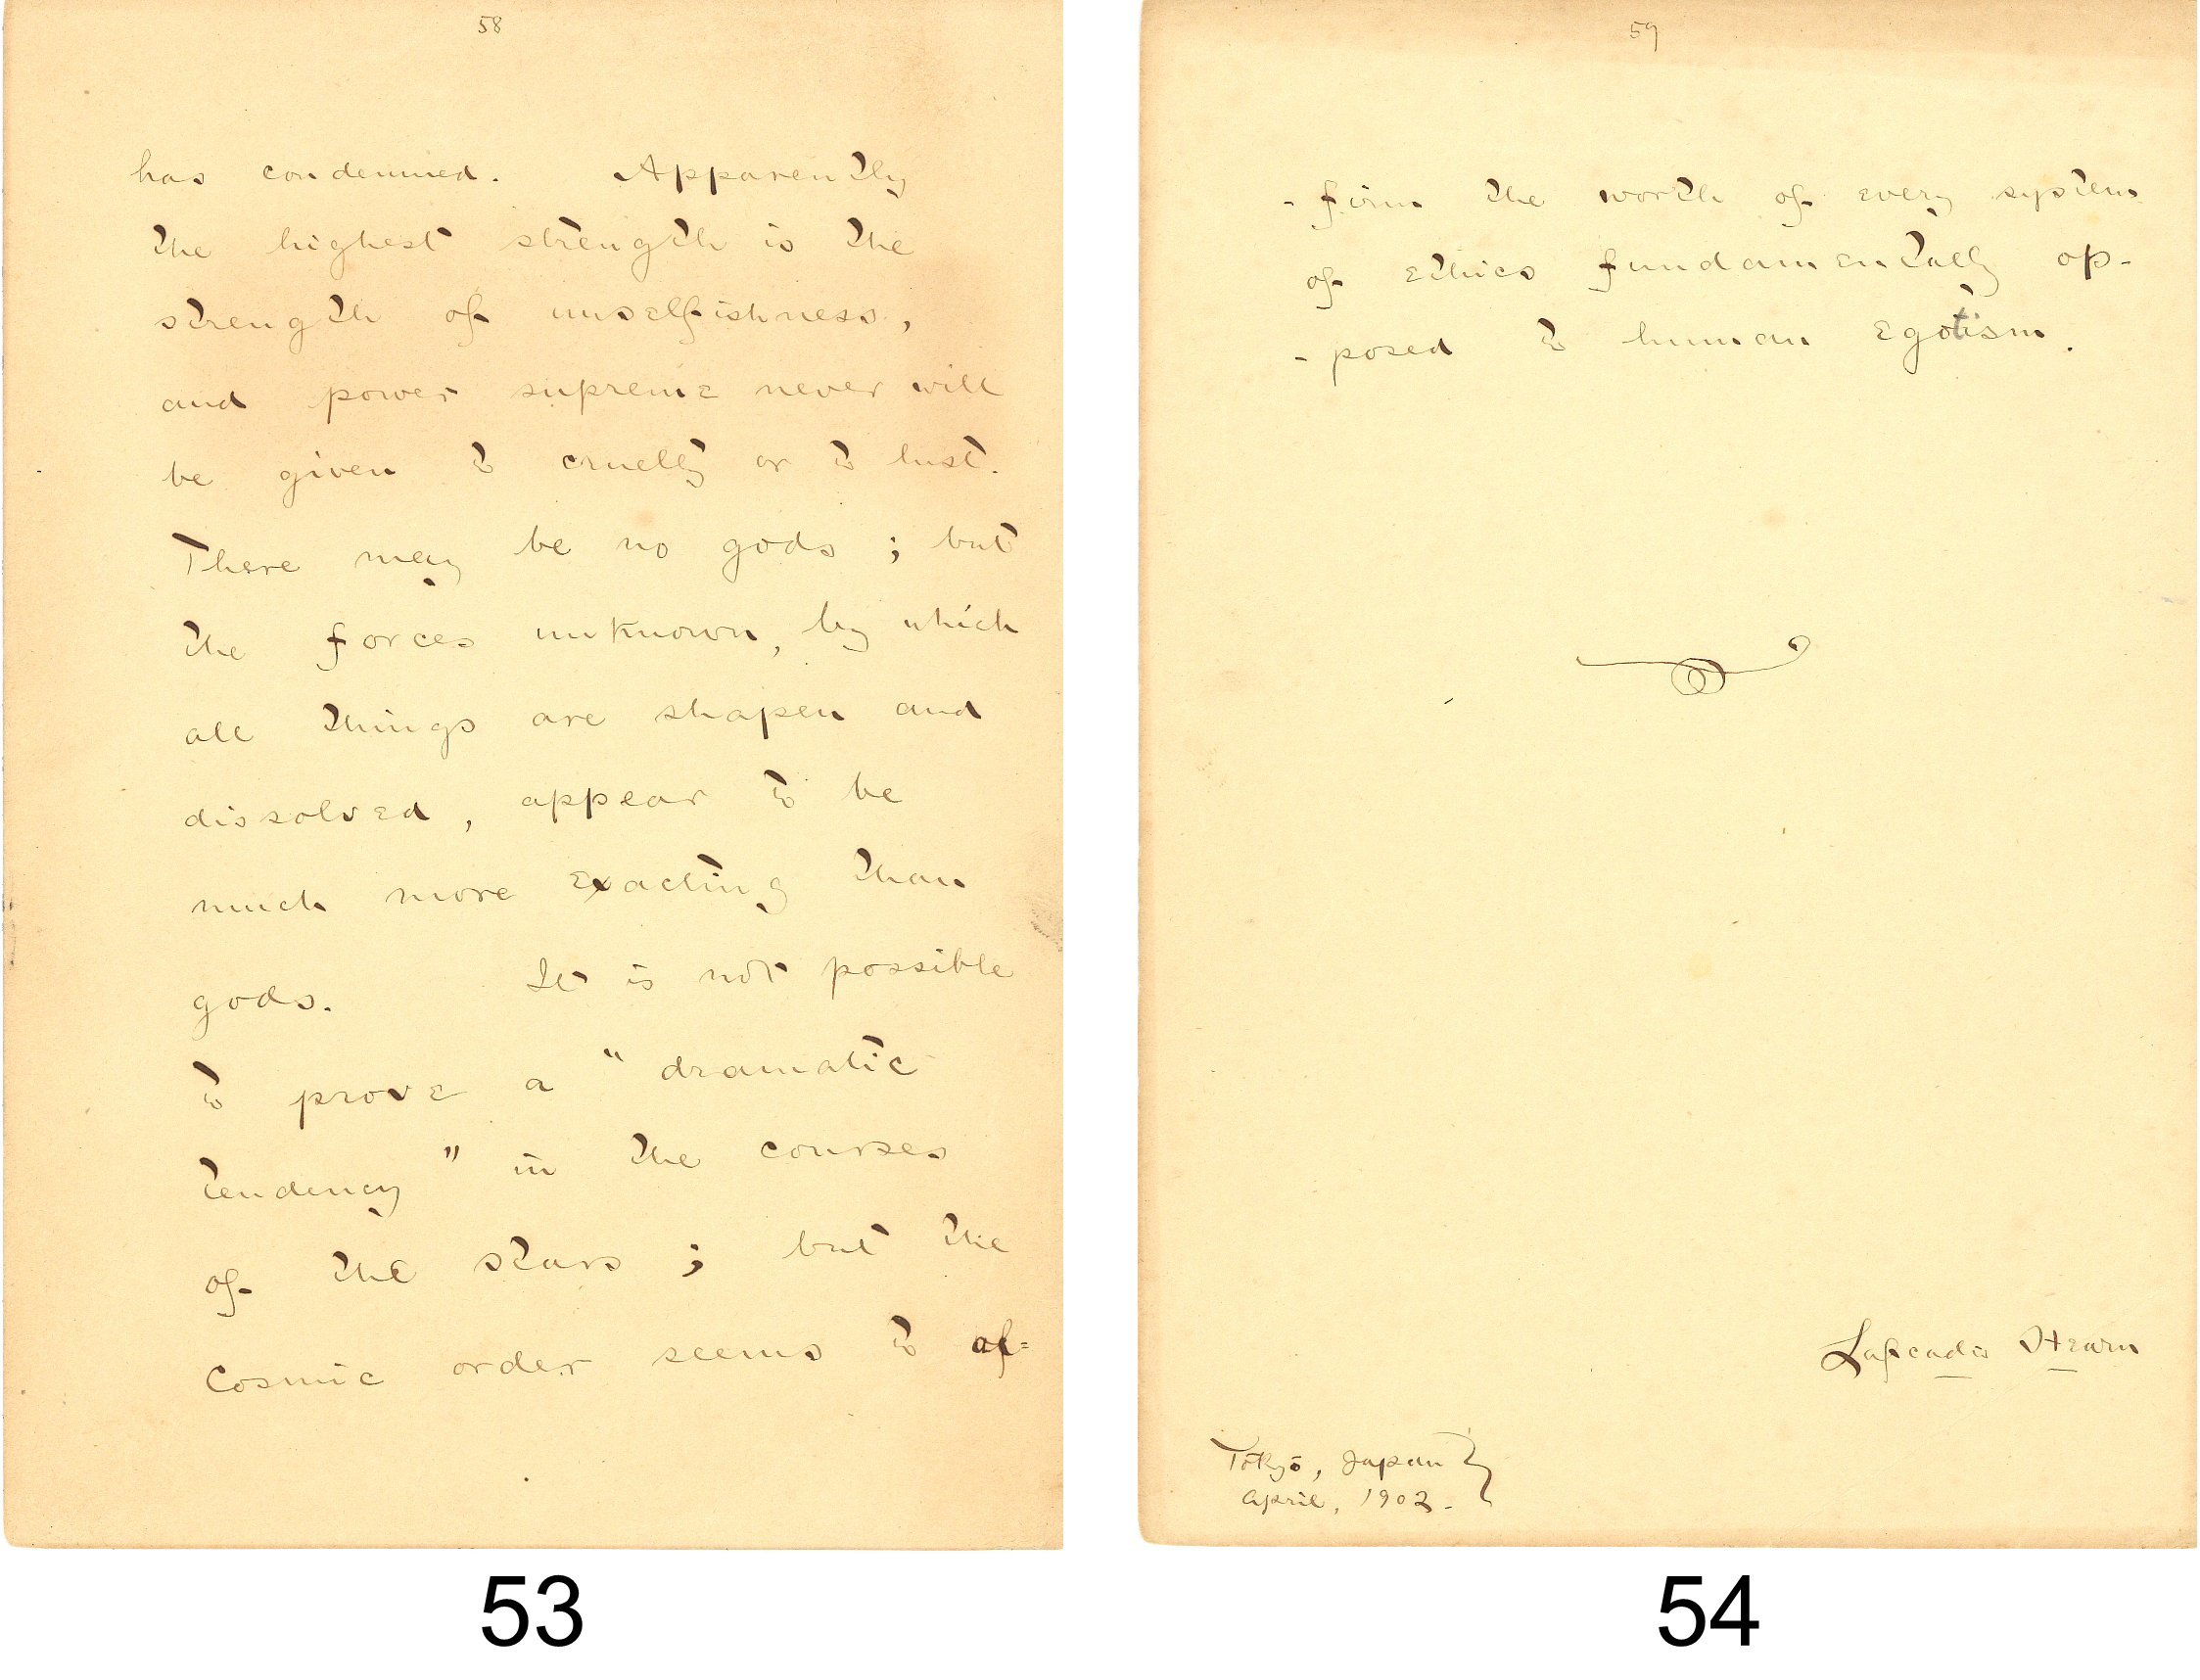 58
has condemned. Apparently
the highest strength is the
strength of unselfishness,
and power supreme never will
be given to cruelty or to lust.
There may be no gods ; but
the forces unknown, by which
all things are shapen and
dissolved, appear to be
much more exacting than
gods. It is not possible
to prove a " dramatic
tendency " in the courses
of the stars ; but the
cosmic order seems to af=
53
59
- firm the worth of every system
of ethics fundamentally op-
- posed to human egotism.
Lafcadio Hearn
Tōkyō, Japan }
April, 1902.
54